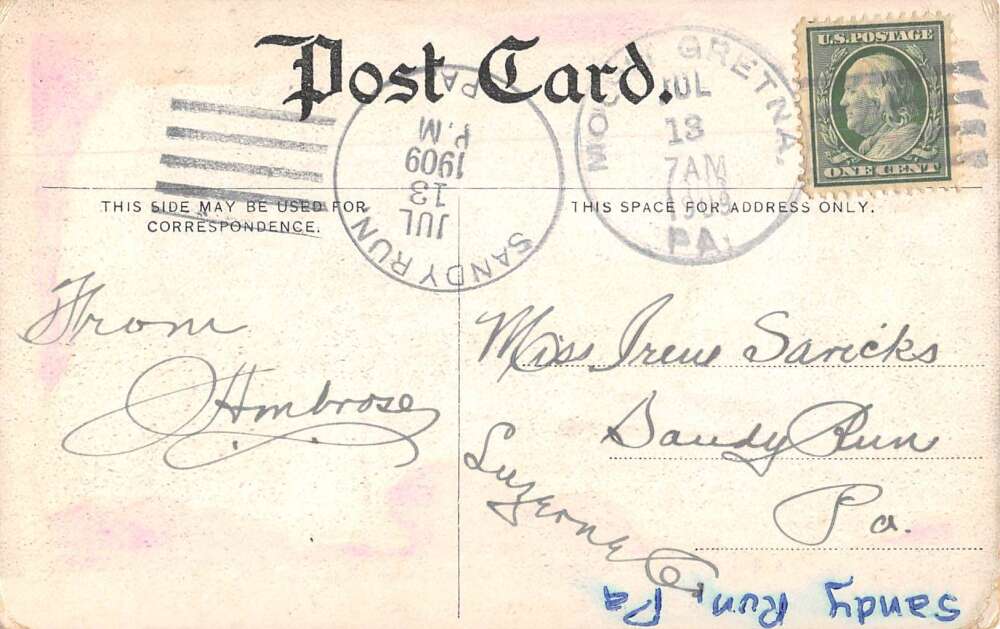 Post Card.
U.S. POSTAGE
ONE CENT
MOUNT GRETNA,
JUL
13
7AM
1909
PA.
SANDY RUN
JUL
13
1909
P.M
PA
THIS SIDE MAY BE USED FOR
CORRESPONDENCE.
THIS SPACE FOR ADDRESS ONLY.
From
Ambrose
Miss Irene Saricks
Sandy Run
Pa.
Luzerne Co.
Sandy Run, Pa